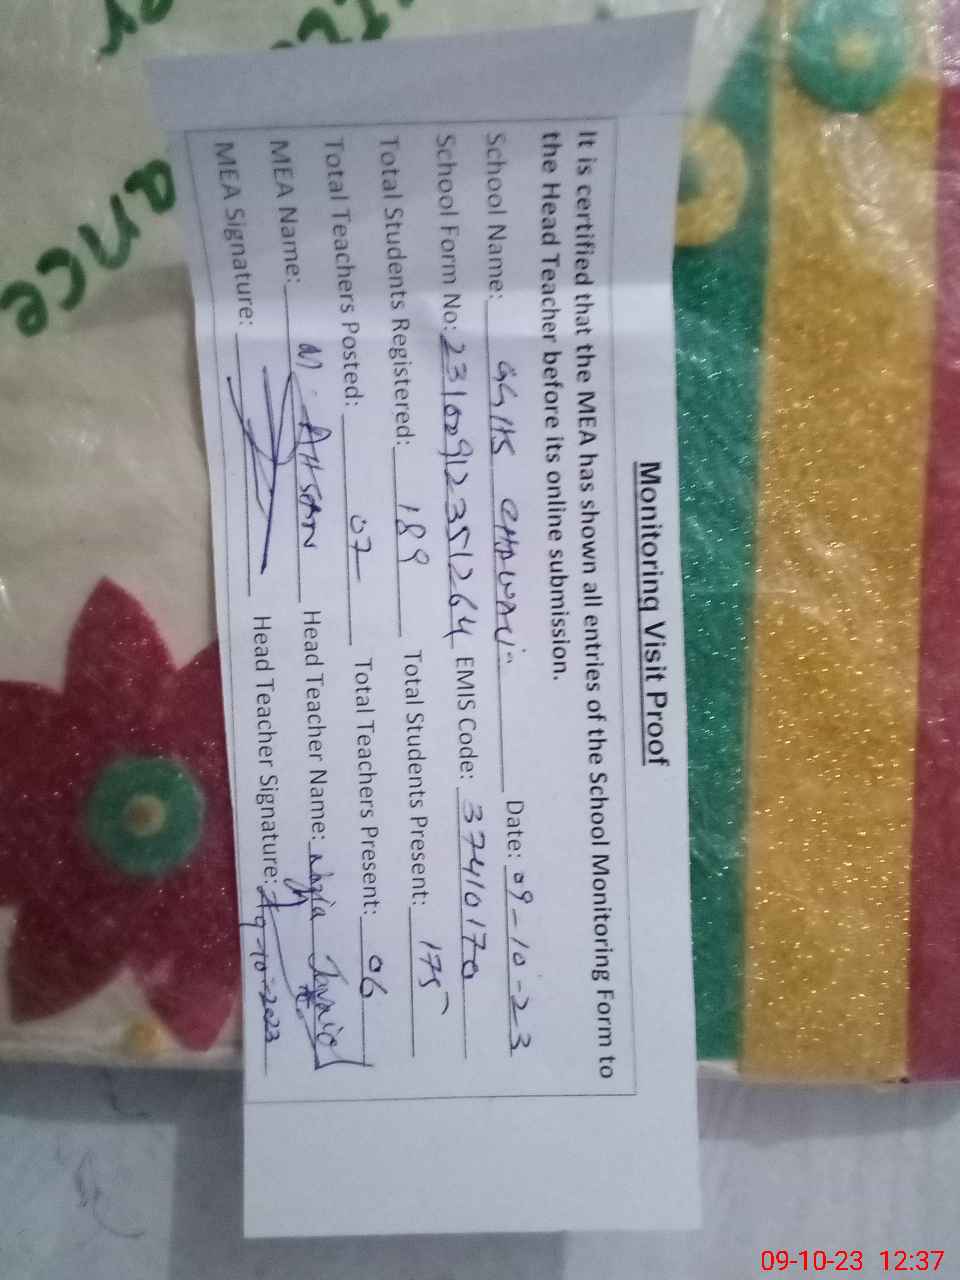 Monitoring Visit Proof
It is certified that the MEA has shown all entries of the School Monitoring Form to
the Head Teacher before its online submission.
School Name: GGHS CHAWALI Date: 09-10-23
School Form No: 23100912351264 EMIS Code: 37410170
Total Students Registered: 189 Total Students Present: 175
Total Teachers Posted: 07 Total Teachers Present: 06
MEA Name: M. AHSAN Head Teacher Name: Nazia Javaid
MEA Signature: Head Teacher Signature: 9-10-2023
ance
09-10-23 12:37